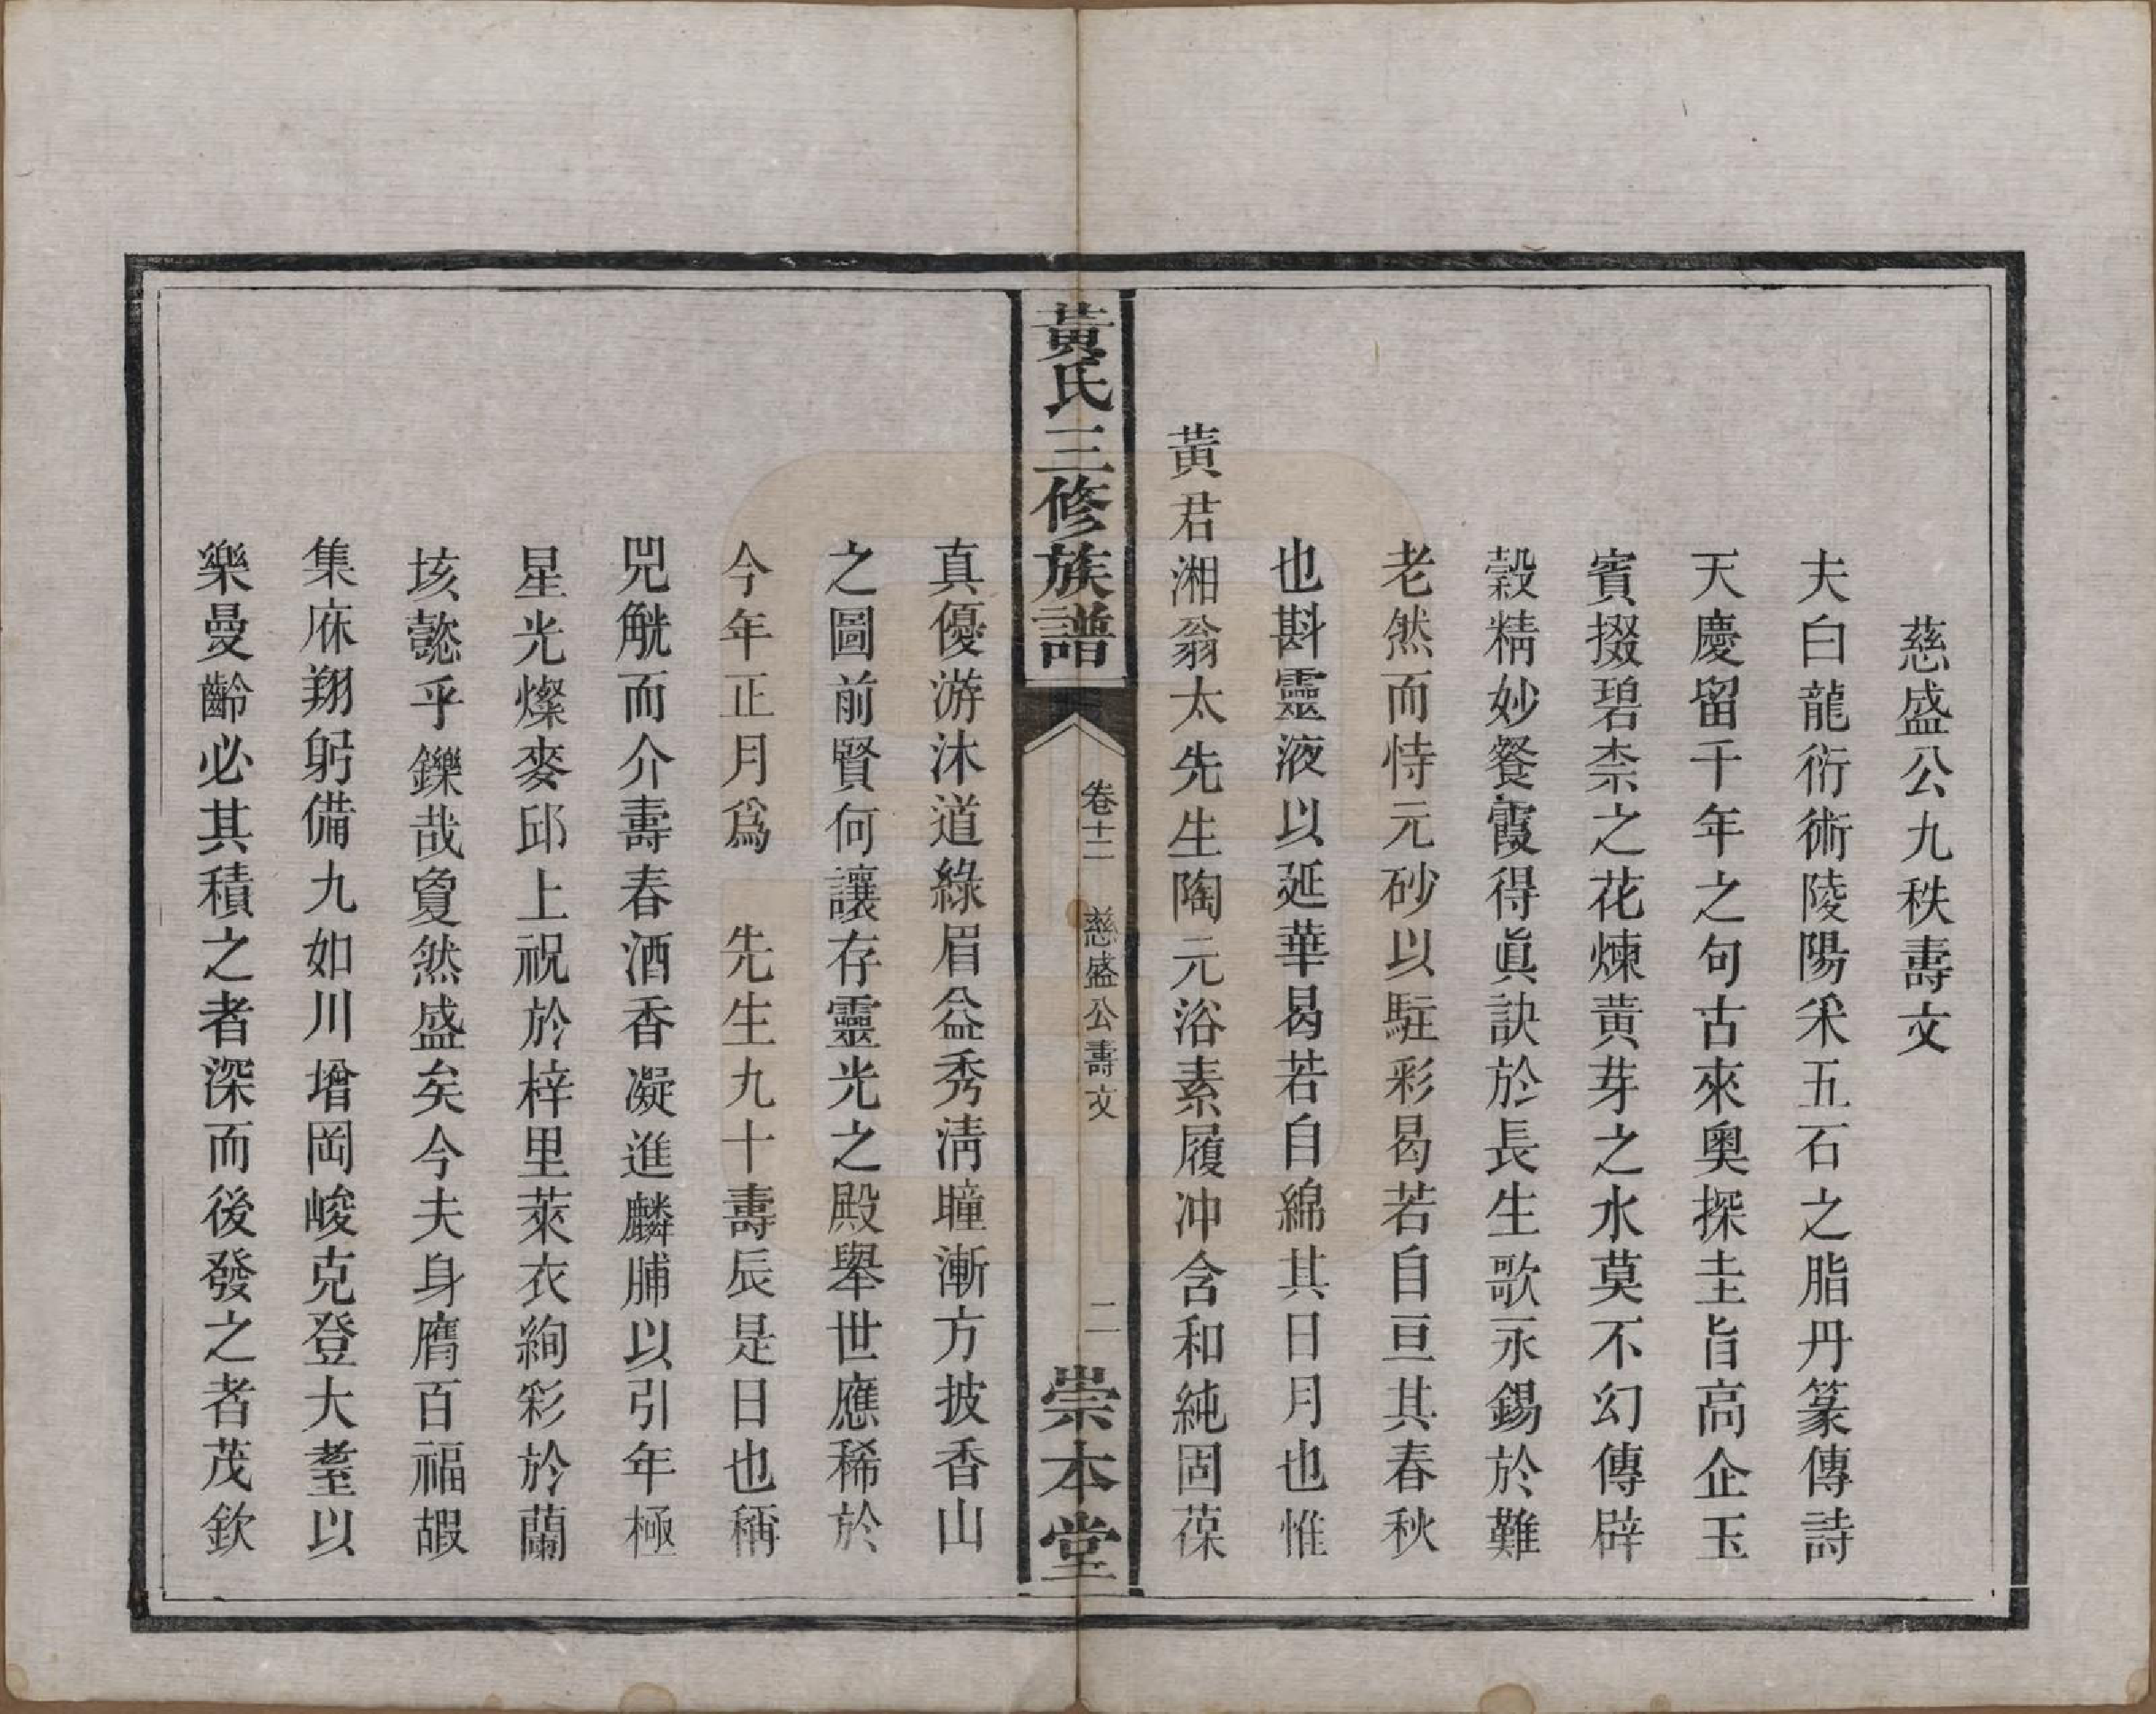 慈盛公九秩壽文
夫白龍衍術陵陽采五石之脂丹篆傳詩
天慶留千年之句古來奧探圭旨高企玉
賓掇碧柰之花煉黃芽之水莫不幻傳辟
穀精妙餐霞得眞訣於長生歌永錫於難
老然而恃元砂以駐彩曷若自亘其春秋
也斟靈液以延華曷若自綿其日月也惟
黃君湘翁太先生陶元浴素履冲含和純固葆
黃氏三修族譜
卷十二
慈盛公壽文
二
崇本堂
真優游沐道綠眉益秀清瞳漸方披香山
之圖前賢何讓存靈光之殿舉世應稀於
今年正月爲 先生九十壽辰是日也稱
兕觥而介壽春酒香凝進麟脯以引年極
星光燦麥邱上祝於梓里萊衣絢彩於蘭
垓懿乎鑠哉敻然盛矣今夫身膺百福嘏
集庥翔躬備九如川增岡峻克登大耋以
樂曼齡必其積之者深而後發之者茂欽